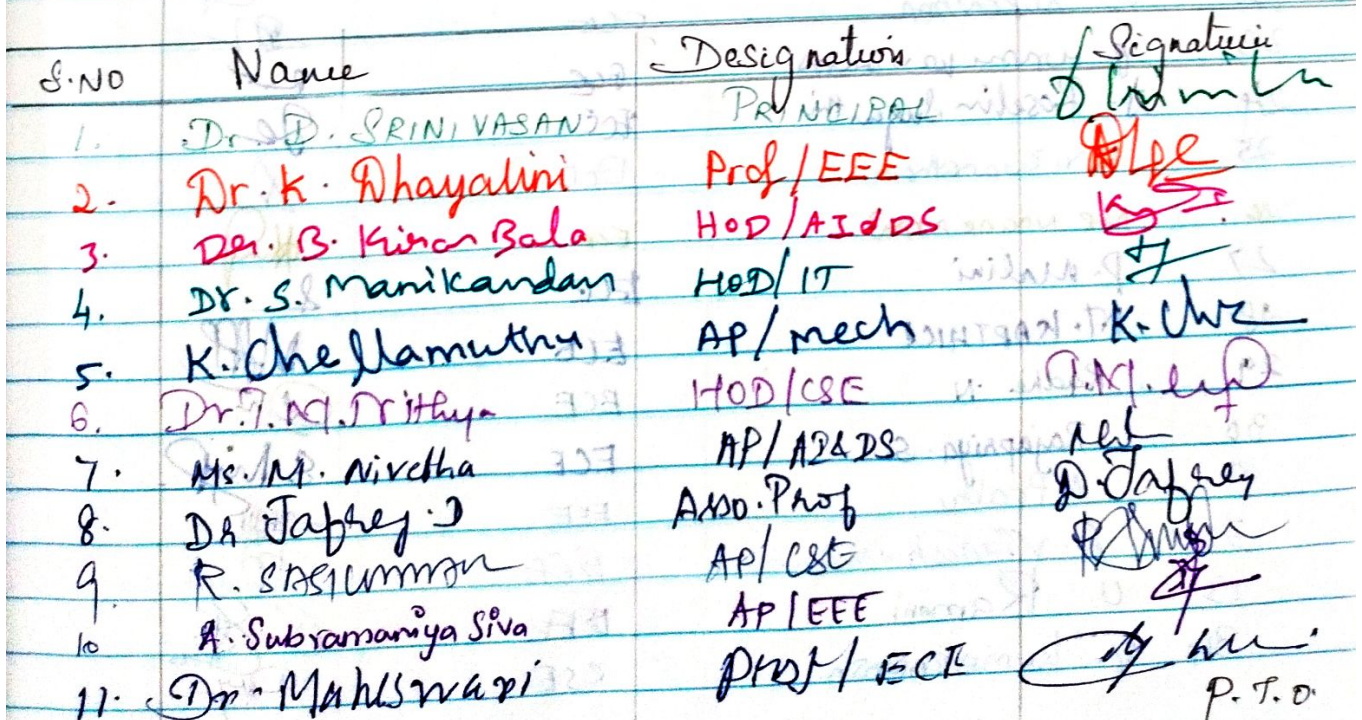 S.NO Name Designation Signature
1. Dr. D. SRINIVASAN PRINCIPAL
2. Dr. K. Dhayalini Prof/EEE
3. Dr. B. Kiran Bala HOD/AI&DS
4. Dr. S. Manikandan HOD/IT
5. K. Chellamuthu AP/mech K. Che
6. Dr. T. M. Nithya HOD/CSE T.M.
7. Ms. M. Nivetha AP/AI&DS
8. Dr Jafrey.D Asso.Prof D.Jafrey
9. R. SASIKUMAR AP/CSE
10 A. Subramaniya Siva AP/EEE
11. Dr. Maheswari Prof/ECE
P.T.O.